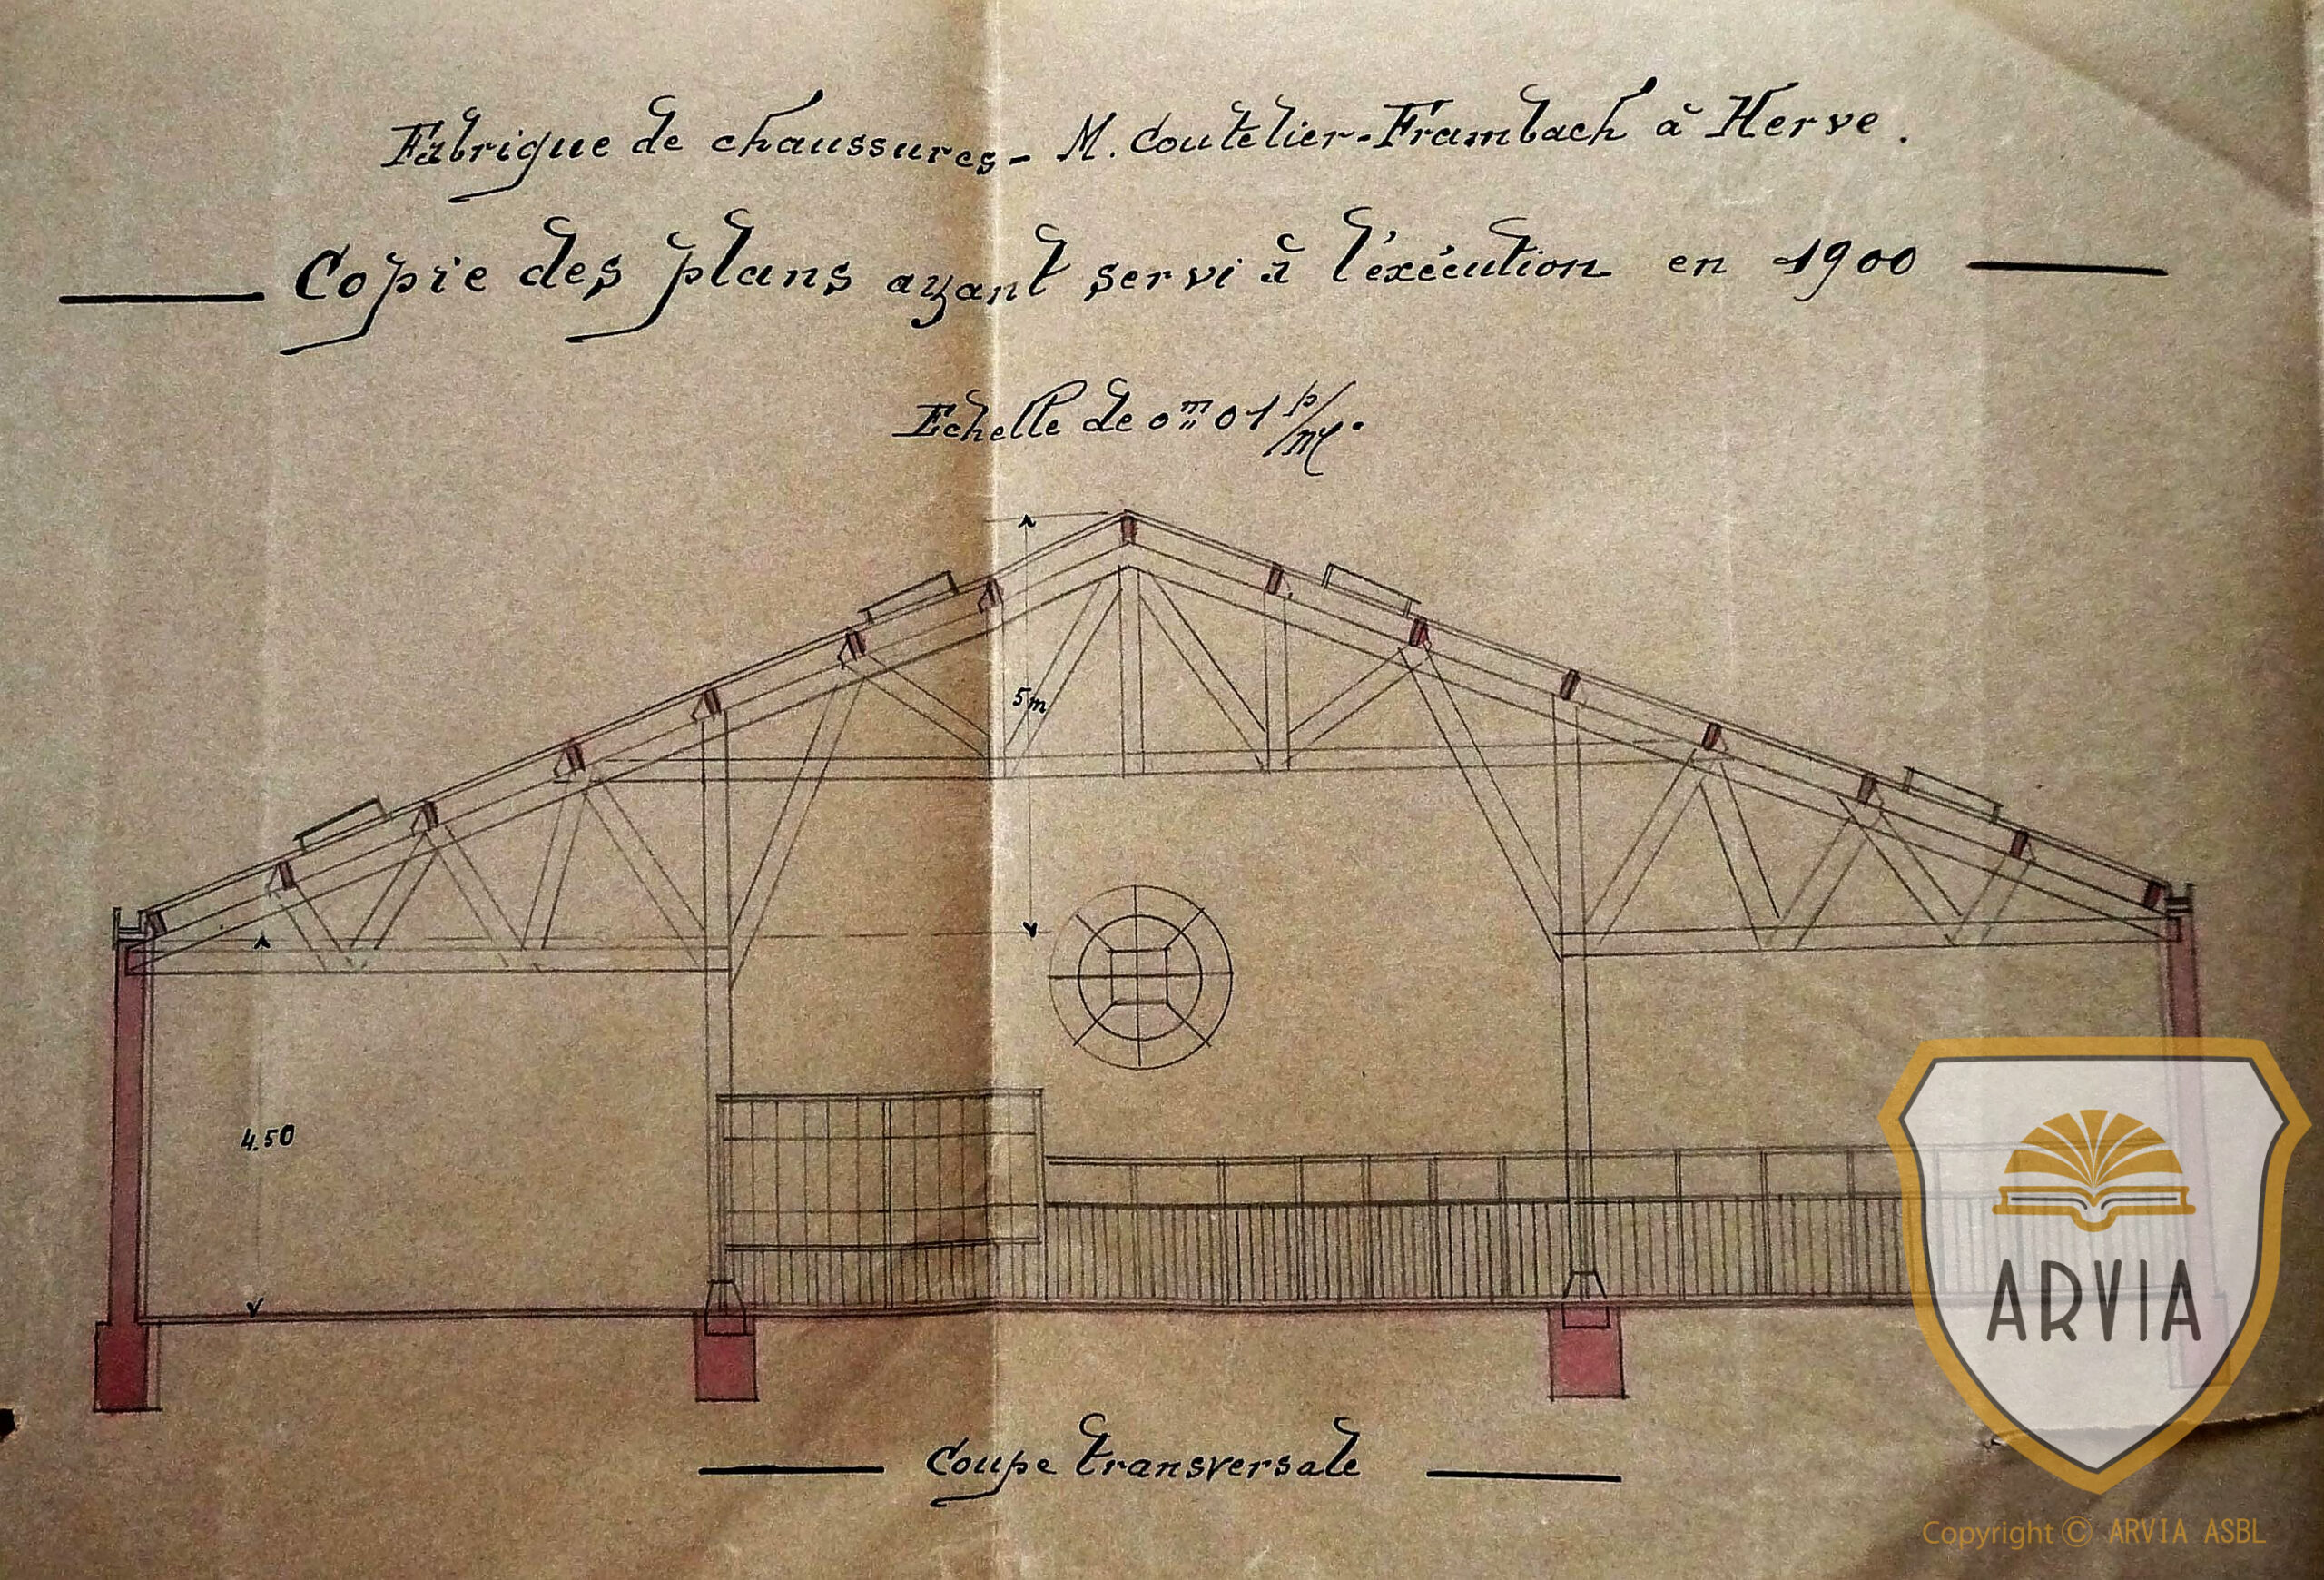 Fabrique de chaussures - M. Coutelier-Frambach à Herve.
Copie des plans ayant servi à l'éxécution en 1900
Echelle de 0m,01 p/m.
5m
4.50
ARVIA
Coupe transversale
Copyright © ARVIA ASBL